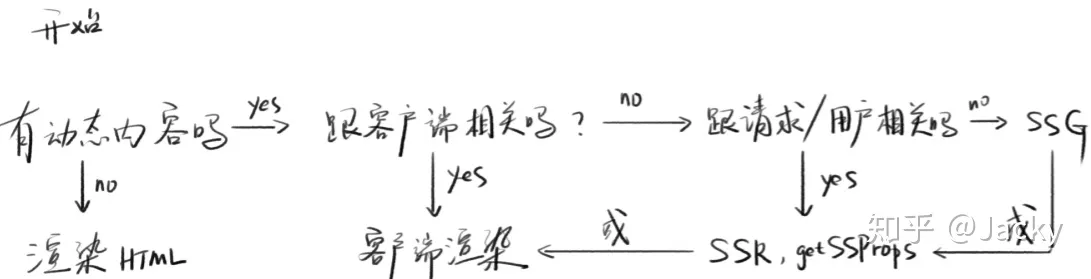 开始
有动态内容吗 yes 跟客户端相关吗？ no 跟请求/用户相关吗 no SSG
no yes yes 或
渲染 HTML 客户端渲染 或 SSR, getSSProps
知乎 @Jacky